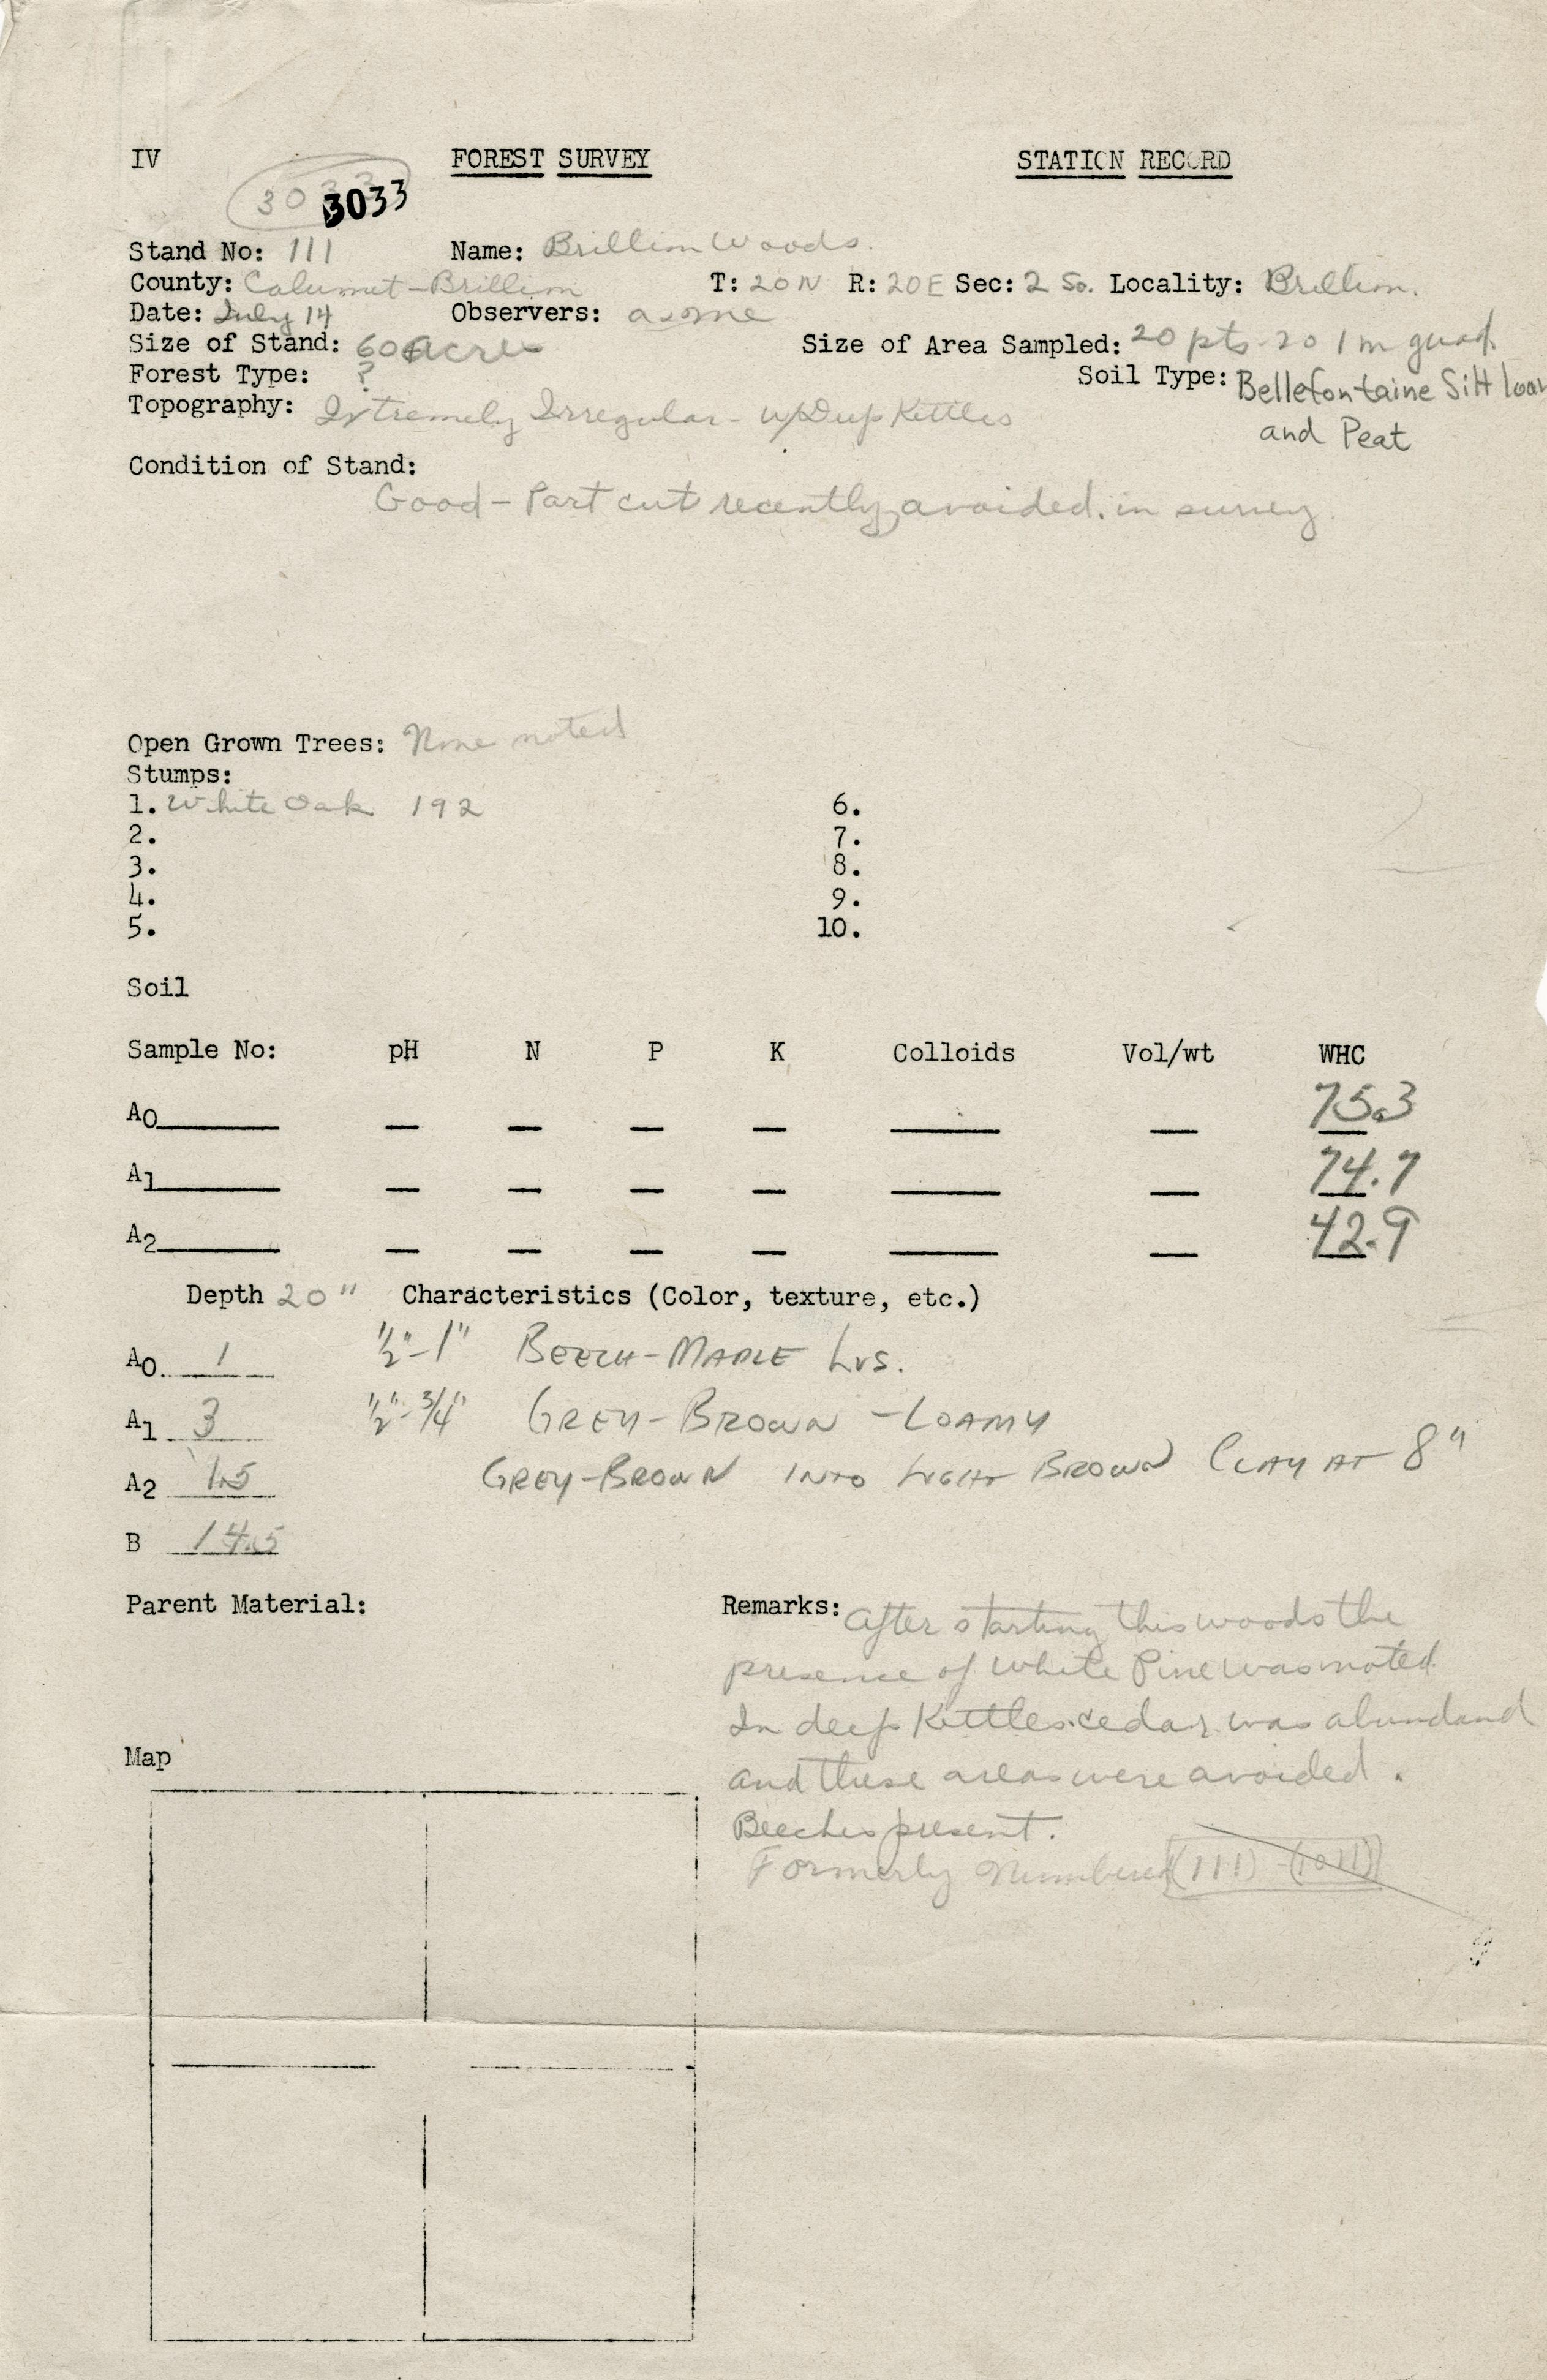 IV FOREST SURVEY STATION RECORD
3033 3033
Stand No: 111 Name: Brillion Woods.
County: Calumet-Brillion T: 20N R: 20E Sec: 2 So. Locality: Brillion.
Date: July 14 Observers:
Size of Stand: 60 acres Size of Area Sampled: 20 pts-20 1 m quad.
Forest Type: ? Soil Type: Bellefontaine Silt loam
Topography: Extremely Irregular - w/Deep Kettles and Peat
Condition of Stand:
Good - Part cut recently, avoided in survey.
Open Grown Trees: None noted
Stumps:
1. White Oak 192 6.
2. 7.
3. 8.
4. 9.
5. 10.
Soil
Sample No: pH N P K Colloids Vol/wt WHC
A0 75.3
A1 74.7
A2 42.9
Depth 20" Characteristics (Color, texture, etc.)
A0 1 ½"-1" BEECH-MAPLE LVS.
A1 3 ½"-¾" GREY-BROWN-LOAMY
A2 1.5 GREY-BROWN INTO LIGHT BROWN CLAY AT 8"
B 14.5
Parent Material: Remarks: After starting this woods the
presence of White Pine was noted.
In deep Kettles cedar was abundand
Map
and these areas were avoided.
Beeches present.
Formerly Numbered (111) (1011)